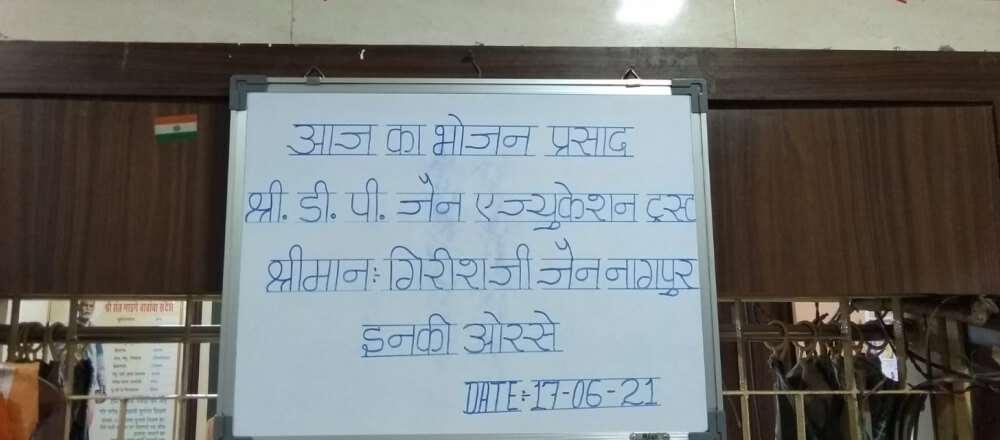 आज का भोजन प्रसाद
श्री. डी. पी. जैन एज्युकेशन ट्रस्ट
श्रीमान:- गिरीशजी जैन नागपुर
इनकी ओरसे
DATE:-17-06-21
श्री संत गाडगे बाबांचा संदेश